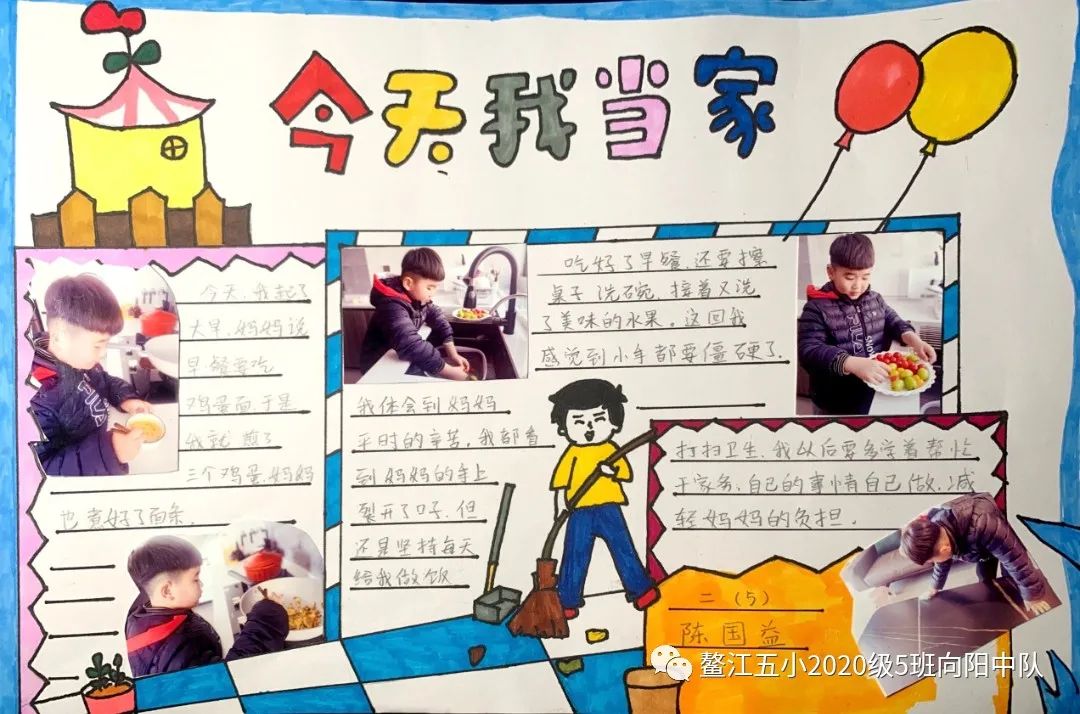 今天我当家
今天,我起了
大早,妈妈说
早餐要吃
鸡蛋面,于是
我就煎了
三个鸡蛋,妈妈
也煮好了面条.
吃好了早餐,还要擦
桌子,洗碗,接着又洗
了美味的水果。这回我
感觉到小手都要僵硬了.
我体会到妈妈
平时的辛苦,我都看
到妈妈的手上
裂开了口子,但
还是坚持每天
给我做饭
打扫卫生,我以后要多学着帮忙
干家务,自己的事情自己做,减
轻妈妈的负担.
二(5)
陈国益
鳌江五小2020级5班向阳中队